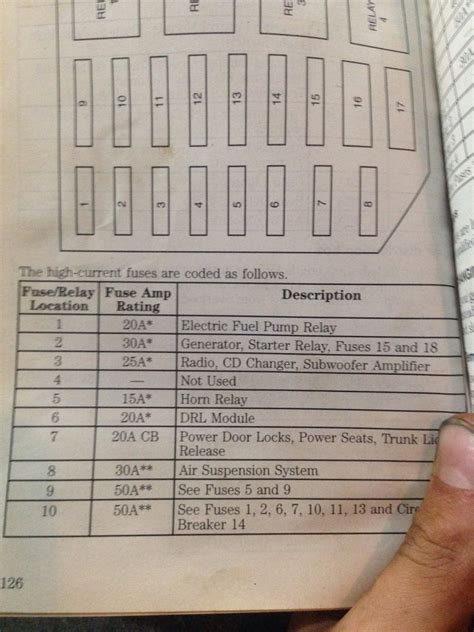 RELAY
3
RELAY
4
9 10 11 12 13 14 15 16 17
1 2 3 4 5 6 7 8
The high-current fuses are coded as follows.
Fuse/Relay Fuse Amp Description
Location Rating
1 20A* Electric Fuel Pump Relay
2 30A* Generator, Starter Relay, Fuses 15 and 18
3 25A* Radio, CD Changer, Subwoofer Amplifier
4 — Not Used
5 15A* Horn Relay
6 20A* DRL Module
7 20A CB Power Door Locks, Power Seats, Trunk
Release
8 30A** Air Suspension System
9 50A** See Fuses 5 and 9
10 50A** See Fuses 1, 2, 6, 7, 10, 11, 13 and
Breaker 14
126